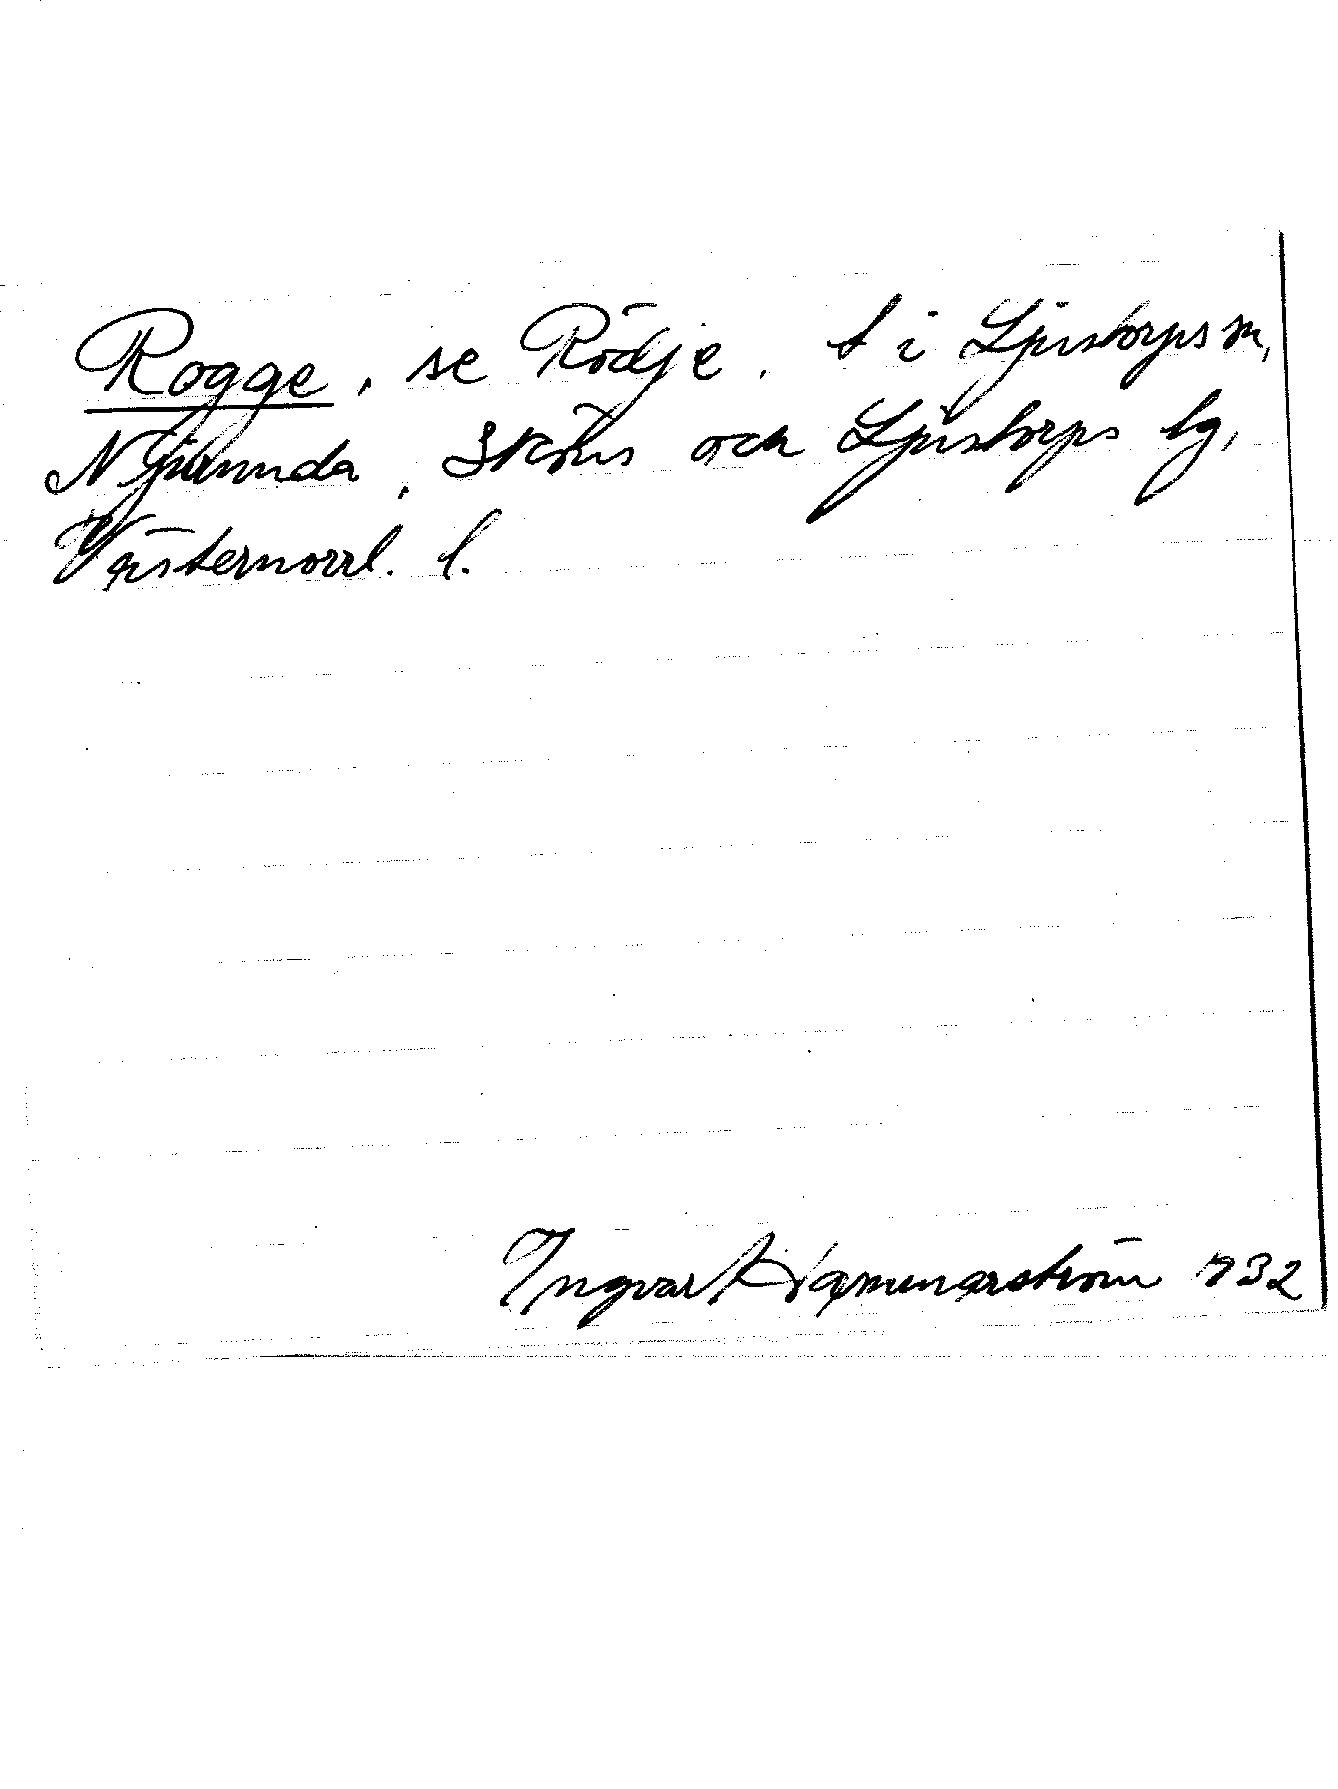 Rogge, se Rödje, t i Ljustorps sn,
Njurunda, Sköns och Ljustorps tg,
Västernorrl. l.
Ingvar Hammarström 1932